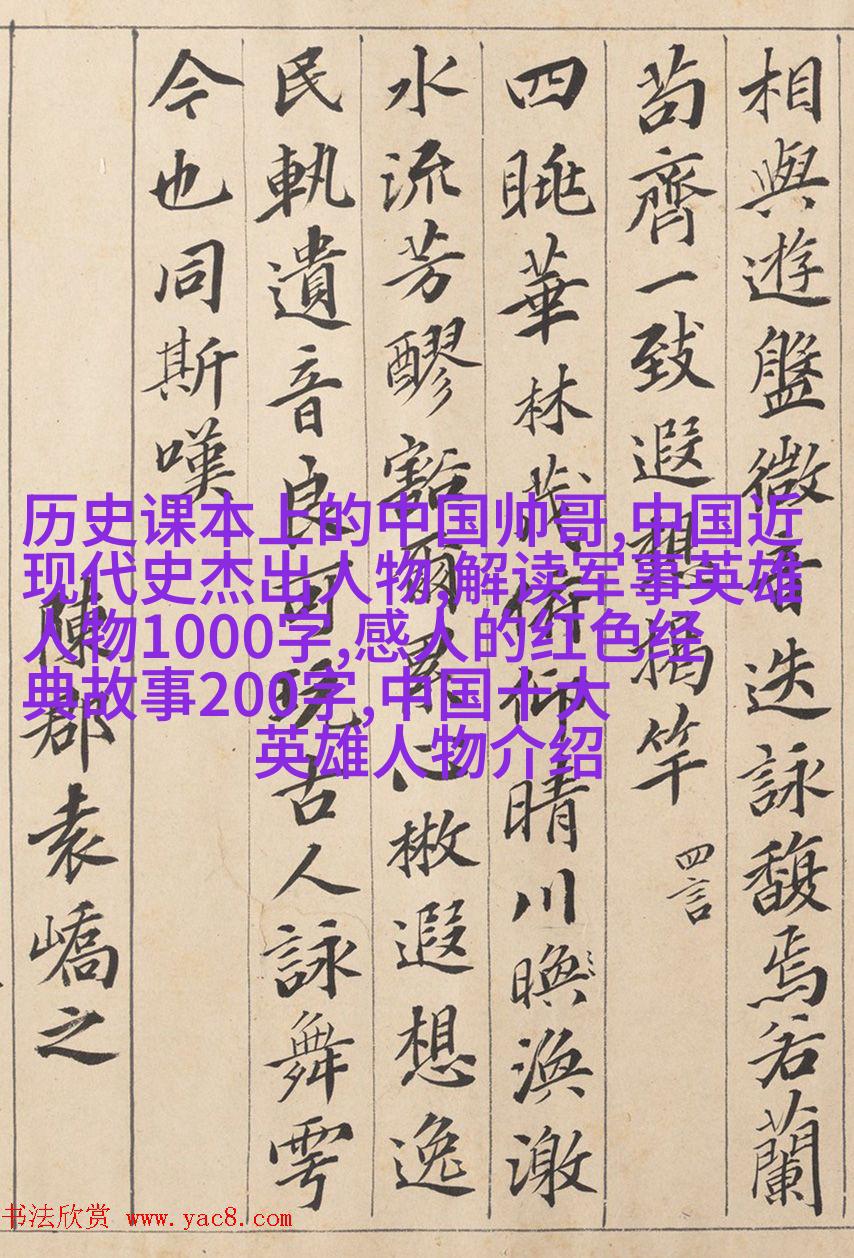 相與遊盤微音迭詠馥焉若蘭
苟齊一致遐想揭竿 四言
四眺華林茂俯仰晴川暎渙激
水流芳醪豁爾累心㪚遐想逸
民軌遺音良可玩古人詠舞雩
今也同斯嘆
陳郡袁嶠之
历史课本上的中国帅哥,中国近
现代史杰出人物,解读军事英雄
人物1000字,感人的红色经
典故事200字,中国十大
英雄人物介绍
书法欣赏 www.yac8.com